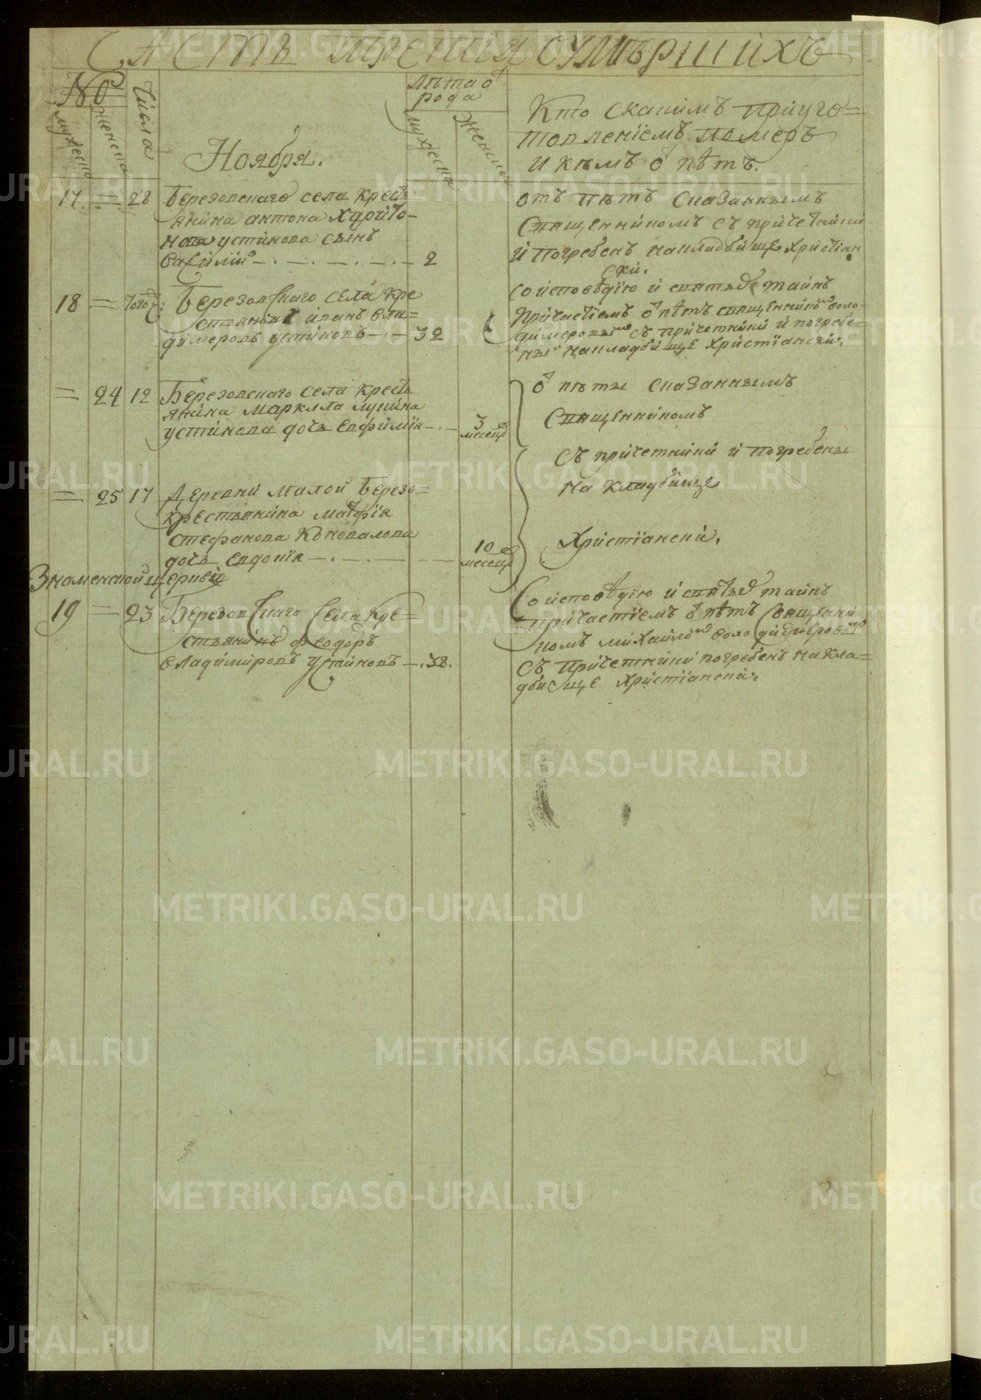 Часть третия оумѣршихъ
№
мужеска
женска
Числа
Ноября.
Лѣта о
рода
мужеска
женска
Кто скакимъ приуго=
товлениемъ померъ
и кѣмъ о пѣтъ.
17 = 28
Березовскаго села крест
янина антона Харито-
нова устинова сынъ
Василий — 2
отъ пѣтъ сказаннымъ
священникомъ съ причетники
и погребенъ накладбище христиан
ски.
18 =
Березовскаго села кре
стьянинъ иванъ Вла=
димеровъ устиновъ — 32
со исповѣдию и святыхъ таинъ
причастиемъ о пѣтъ священникомъ
съ причетники и погребе=
накладбище христиански.
= 24 12
Березовскаго села крест
янина устинова дочь Евфимия —
3
месецъ
о пѣты сказаннымъ
священникомъ
съ причетники и погребены
на кладбище
христиански.
= 25 17
Деревни малой Березо=
крестьянина матфия
стефанова Коновалова
дочь Евдокия —
10
месецъ
Знаменской церкви
19 = 23
Березовскаго села кре=
стьянинъ феодоръ
Владимировъ устиновъ — 38.
со исповѣдию и святыхъ таинъ
причастиемъ о пѣтъ священни
комъ михайломъ
съ причетники погребенъ накла=
дбище христиански.
METRIKI.GASO-URAL.RU